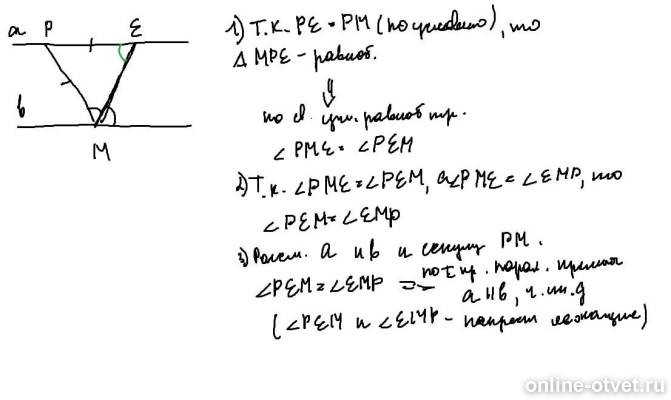 a P E
b
M
1) Т.к. PE = PM (по условию), то
Δ MPE - равноб.
⇓
по св. равноб тр.
∠PME = ∠PEM
2) Т.к. ∠PME = ∠PEM, а ∠PME = ∠EMP, то
∠PEM = ∠EMP
3) Рассм. a и b и секущ PM.
∠PEM = ∠EMP ⇒ по I пр. парал. прямых
a ıı b, ч.т.д
(∠PEM и ∠EMP - накрест лежащие)
online-otvet.ru